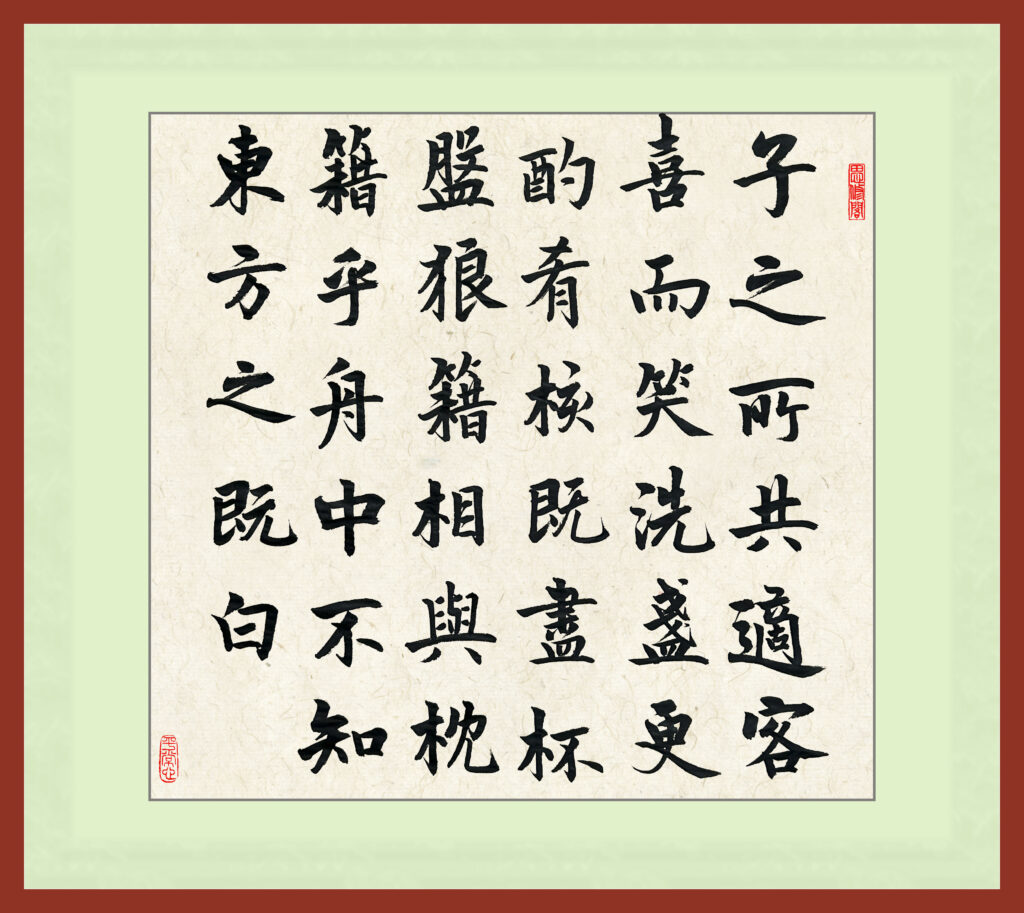 思修閣
子之所共適客
喜而笑洗盞更
酌肴核既盡杯
盤狼籍相與枕
籍乎舟中不知
東方之既白
平常心